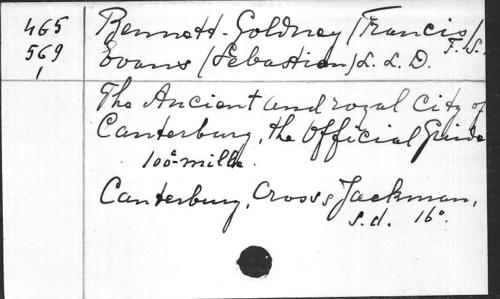 465
569
1
Bennett-Goldney (Francis) F.S.
Evans (Sebastian) L.L.D.
The Ancient and royal City of
Canterbury, the Official Guide
100e mille.
Canterbury, Cross & Jackman,
s.d. 16°.